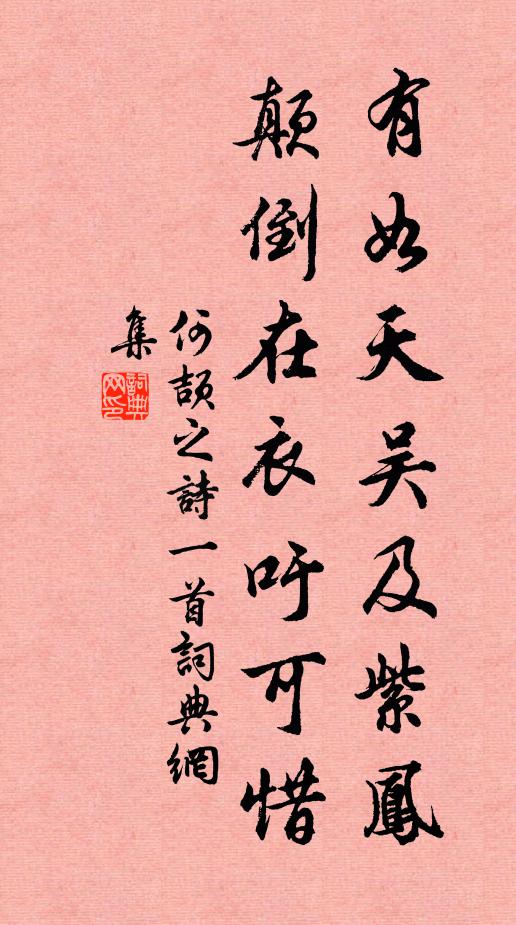 有如天吴及紫鳳
顛倒在衣吁可惜
何頡之詩一首詞典網
集
詞典
网印